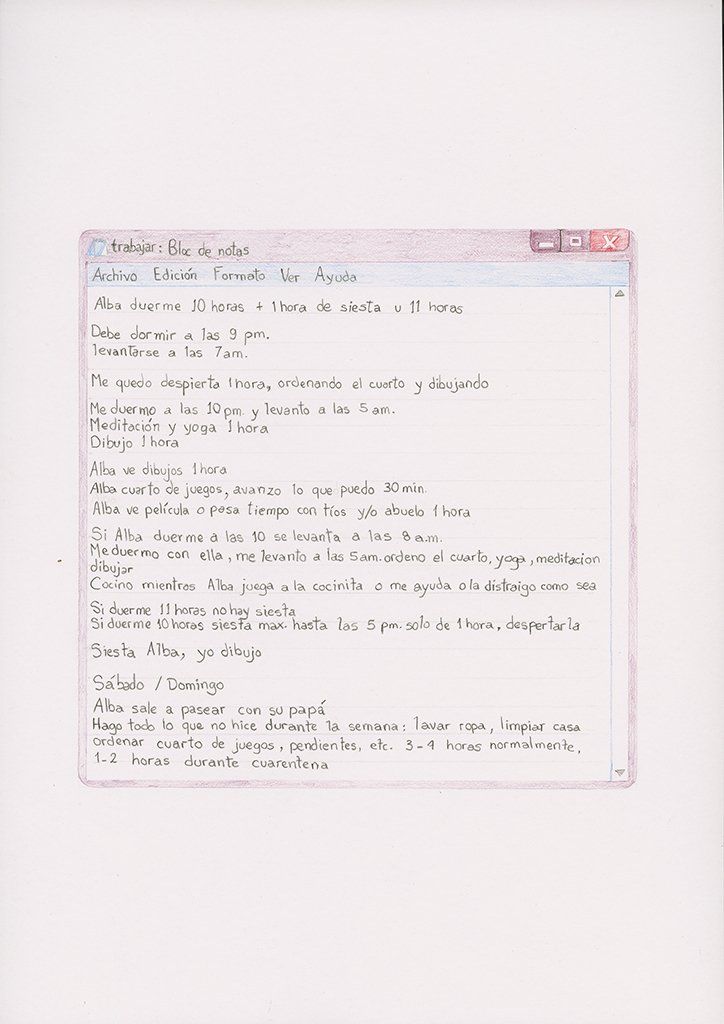 trabajar: Bloc de notas
Archivo Edición Formato Ver Ayuda
Alba duerme 10 horas + 1 hora de siesta u 11 horas
Debe dormir a las 9 pm.
levantarse a las 7am.
Me quedo despierta 1 hora, ordenando el cuarto y dibujando
Me duermo a las 10 pm. y levanto a las 5 am.
Meditación y yoga 1 hora
Dibujo 1 hora
Alba ve dibujos 1 hora
Alba cuarto de juegos, avanzo lo que puedo 30 min.
Alba ve película o pasa tiempo con tíos y/o abuelo 1 hora
Si Alba duerme a las 10 se levanta a las 8 a.m.
Me duermo con ella, me levanto a las 5 am. ordeno el cuarto, yoga, meditacion
dibujar
Cocino mientras Alba juega a la cocinita o me ayuda o la distraigo como sea
Si duerme 11 horas no hay siesta
Si duerme 10 horas siesta max. hasta las 5 pm. solo de 1 hora, despertarla
Siesta Alba, yo dibujo
Sábado / Domingo
Alba sale a pasear con su papá
Hago todo lo que no hice durante la semana: lavar ropa, limpiar casa
ordenar cuarto de juegos, pendientes, etc. 3-4 horas normalmente,
1-2 horas durante cuarentena